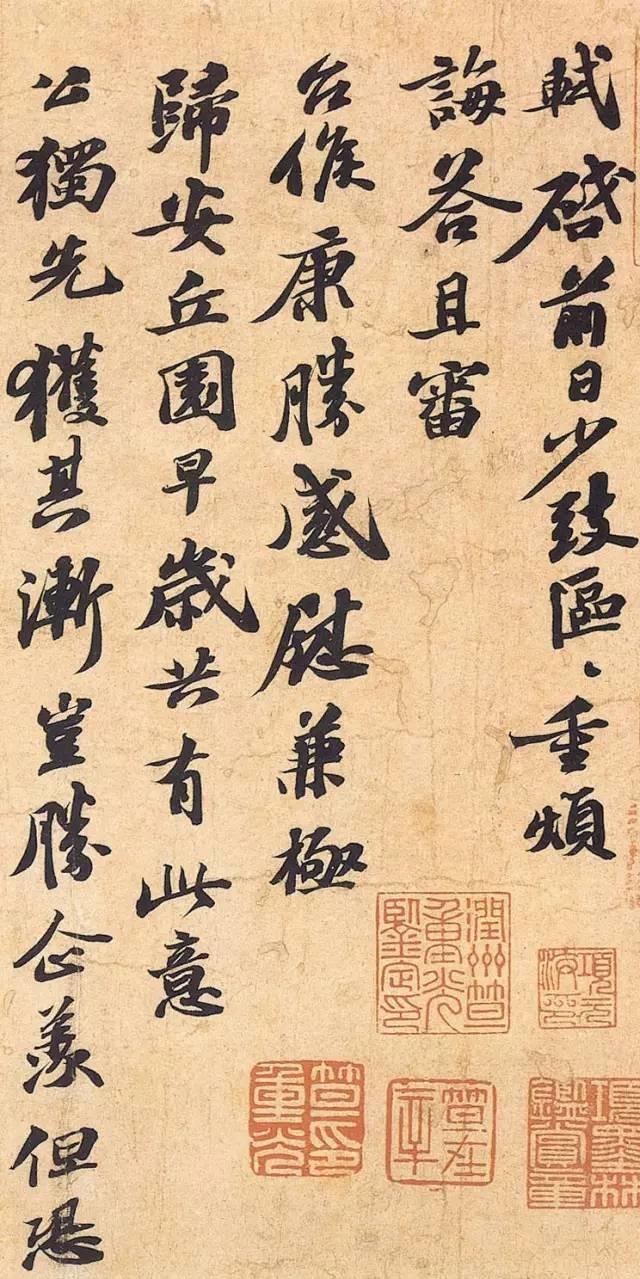 軾啓前日少致區〻重煩
誨答且審
台候康勝感慰兼極
歸安丘園早歲共有此意
公獨先獲其漸豈勝企羨但恐
潤州笪重光鑒定印
笪重光印